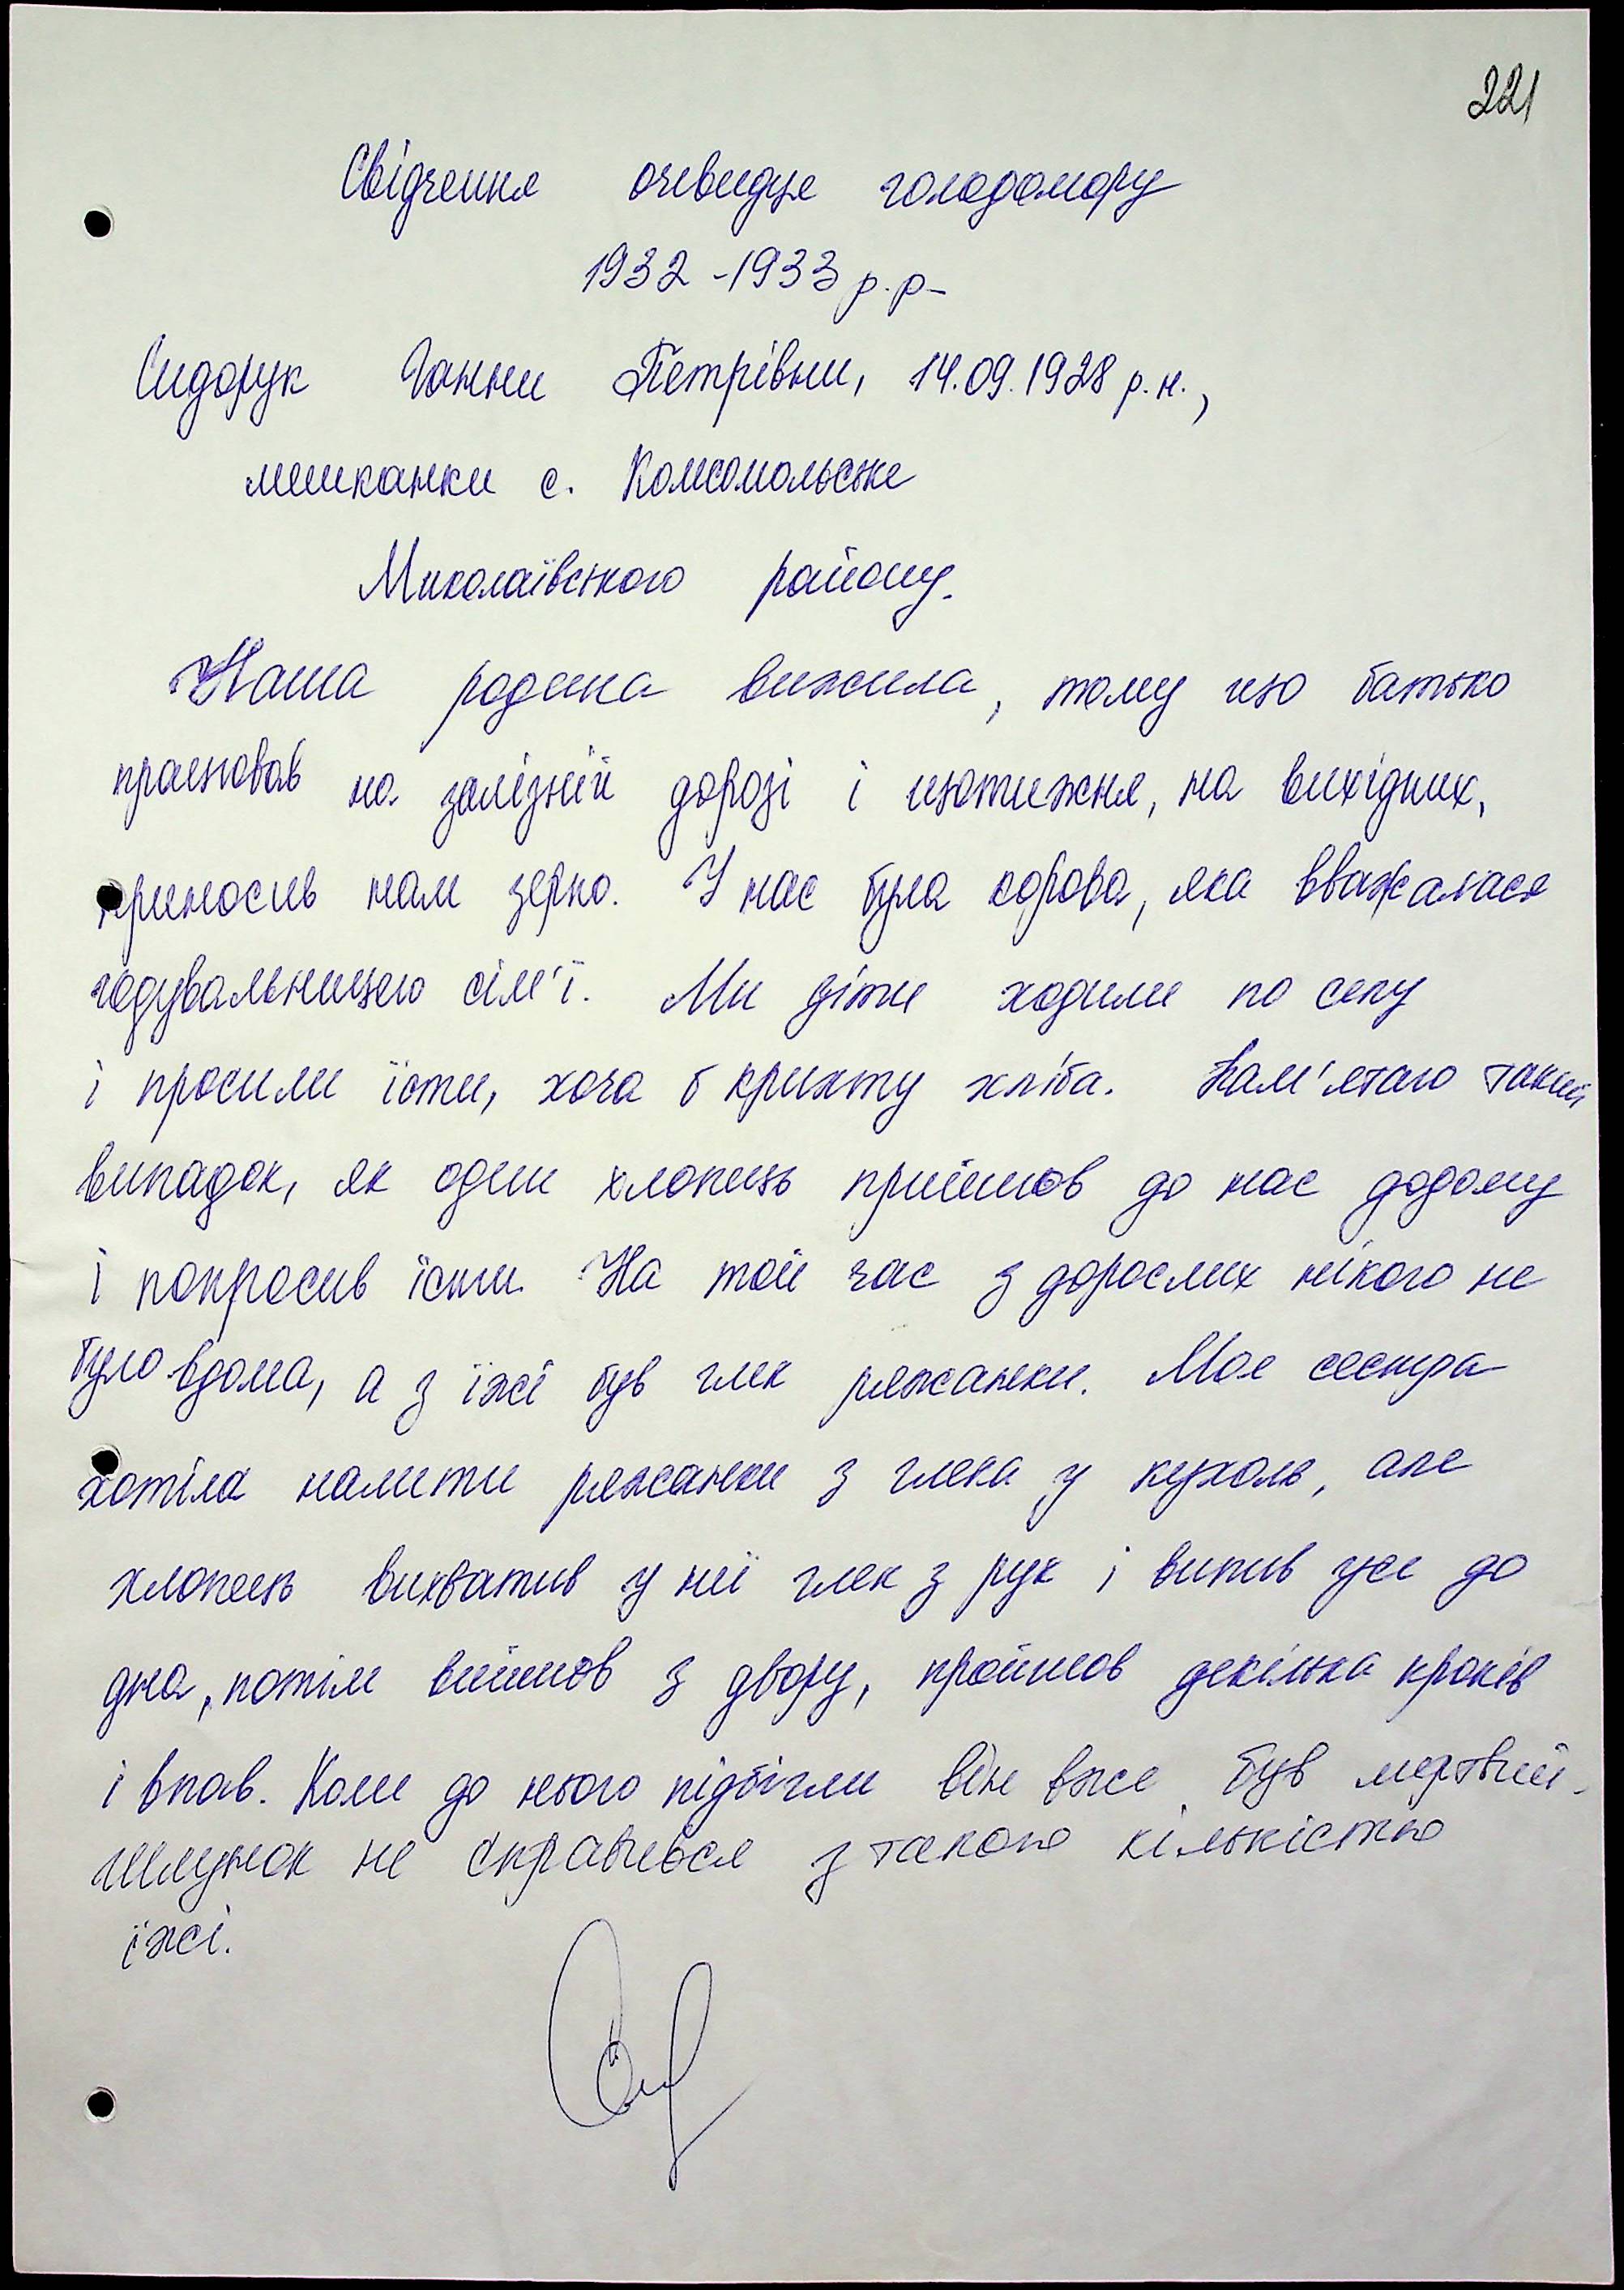 221
Свідчення очевидця голодомору
1932-1933 р.р-
Сидорук Ганни Петрівни, 14.09.1928 р.н.,
мешканки с. Комсомольське
Миколаївського району.
Наша родина вижила, тому що батько
працював на залізній дорозі і щотижня, на вихідних,
приносив нам зерно. У нас була корова, яка вважалася
годувальницею сім'ї. Ми діти ходили по селу
і просили їсти, хоча б крихту хліба. Пам'ятаю такий
випадок, як один хлопець прийшов до нас додому
і попросив їсти. На той час з дорослих нікого не
було вдома, а з їжі був глек ряжанки. Моя сестра
хотіла налити ряжанки з глека у кухоль, але
хлопець вихватив у неї глек з рук і випив усе до
дна, потім вийшов з двору, пройшов декілька кроків
і впав. Коли до нього підбігли він вже був мертвий.
Шлунок не справився з такою кількістю
їжі.